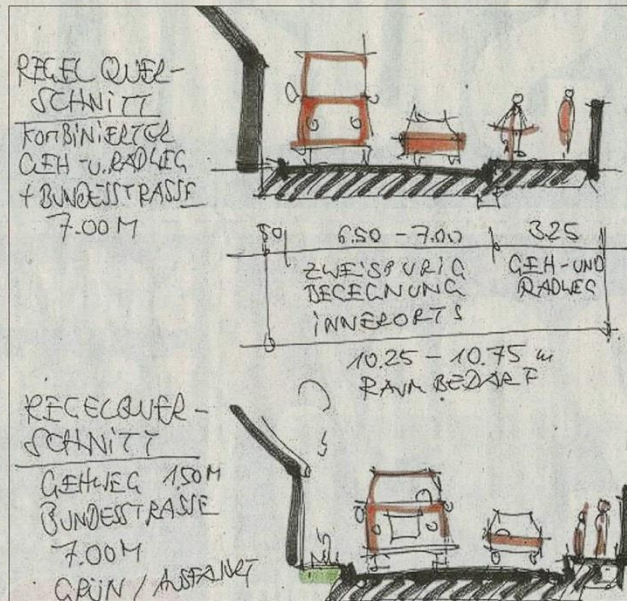 REGEL QUER-
SCHNITT
KOMBINIERTER
GEH-U. RADWEG
+ BUNDESSTRASSE
7.00 M
50 6.50 - 7.00 3.25
ZWEISPURIG
BEGEGNUNG
INNERORTS
GEH-UND
RADWEG
10.25 - 10.75 m
RAUM BEDARF
REGELQUER-
SCHNITT
GEHWEG 1.50 M
BUNDESSTRASSE
7.00 M
GRÜN / AUSFAHRT